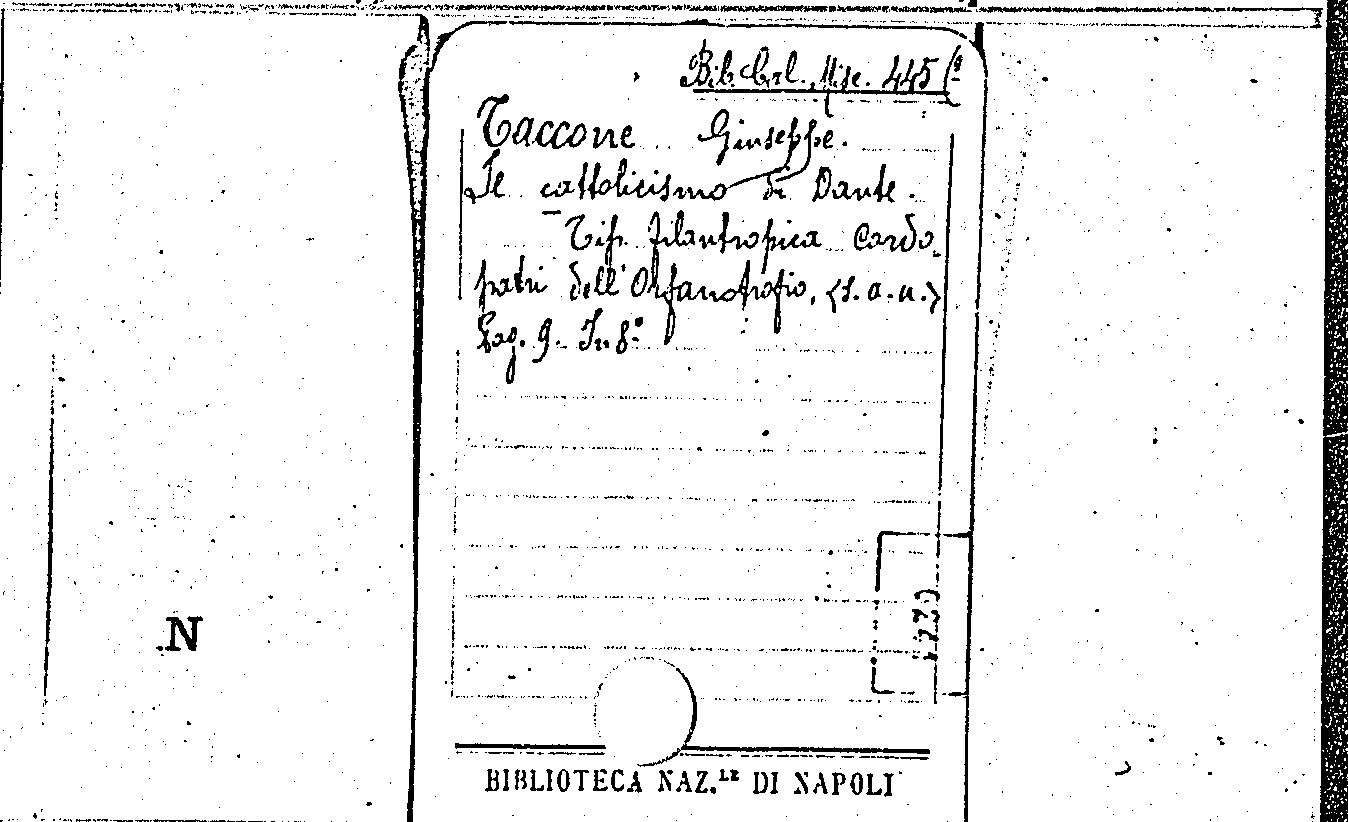 Misc. 445 (9
Taccone Giuseppe.
Il cattolicismo di Dante.
Tip. filantropica Cardo
patri dell'Orfanotrofio, <s. a. n.>
Pag. 9. In 8°
N
BIBLIOTECA NAZ.LE DI NAPOLI